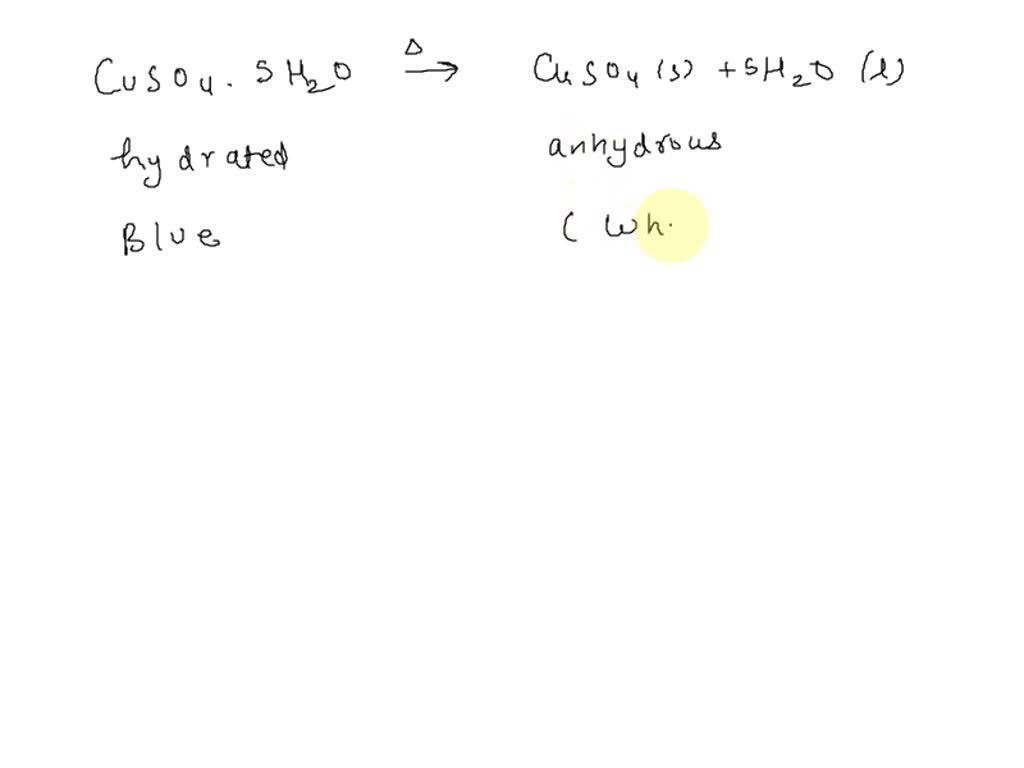 CuSO4. 5H2O Δ→ CuSO4 (s) + 5H2O (l)
hydrated anhydrous
Blue ( Wh.